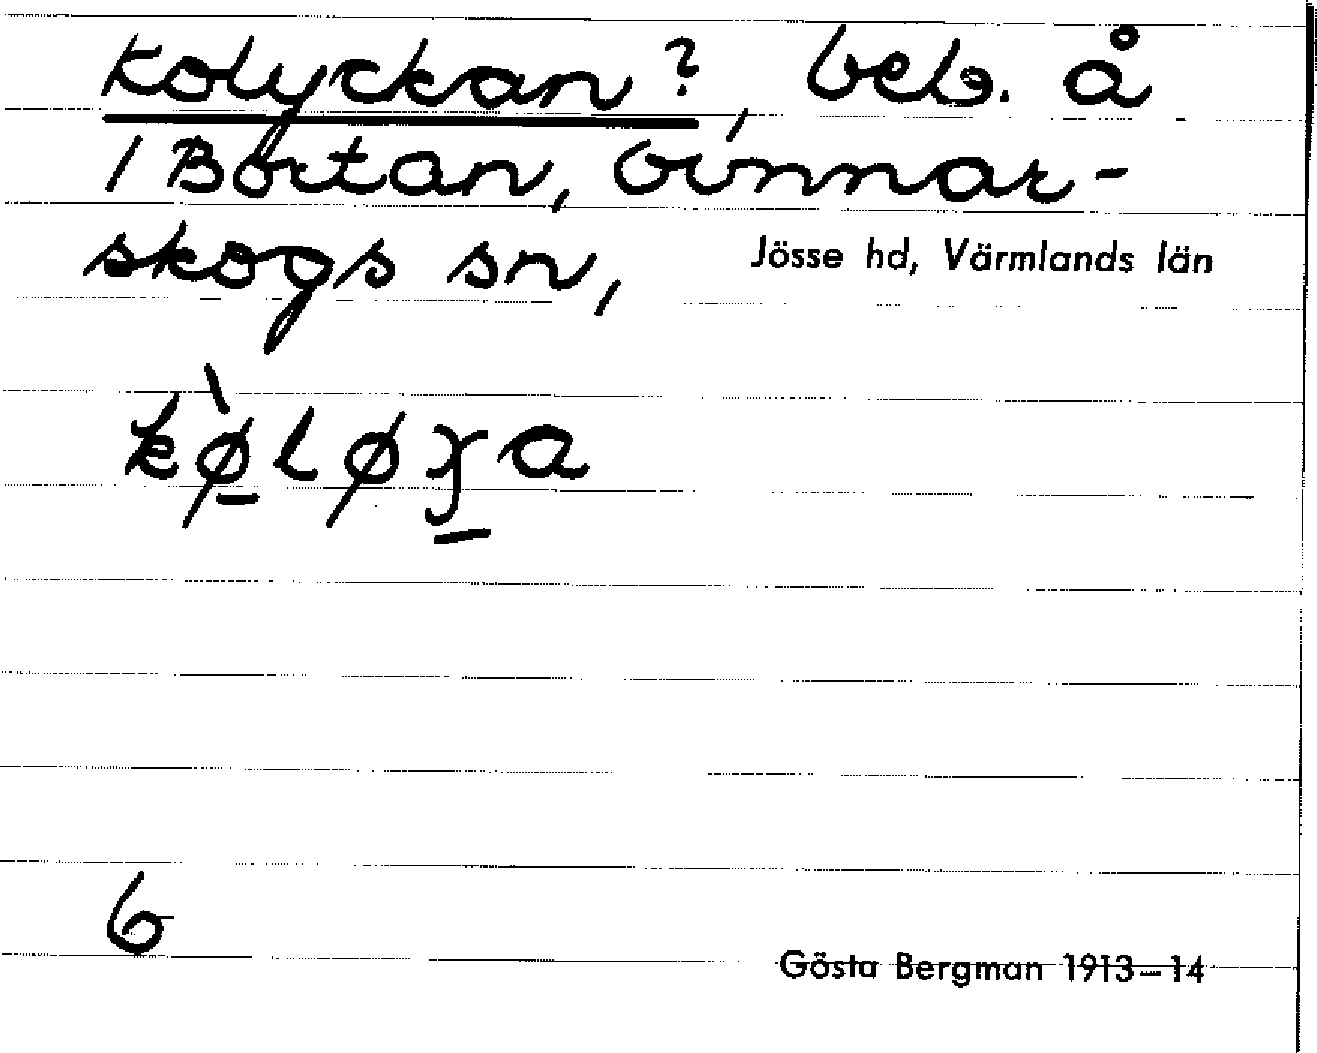 Kolyckan?, beb. å
1 Bortan, Gunnar-
skogs sn, Jösse hd, Värmlands län
6
Gösta Bergman 1913–14